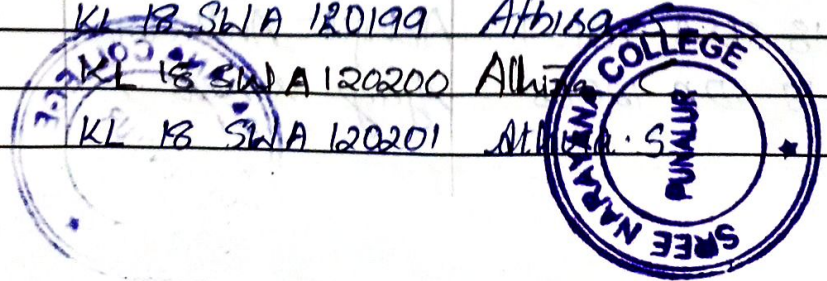 KL 18 SWA 120199 Athira
KL 18 SWA 120200 Athira
KL 18 SWA 120201 Athira. S
SREE NARAYANA COLLEGE
PUNALUR